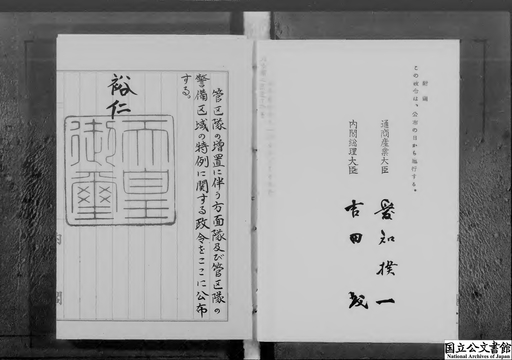 附則
この政令は、公布の日から施行する。
通商産業大臣 愛知揆一
内閣総理大臣 吉田茂
管区隊の増置に伴う方面隊及び管区隊の
警備区域の特例に関する政令をここに公布
する。
裕仁
天皇
御璽
国立公文書館
National Archives of Japan